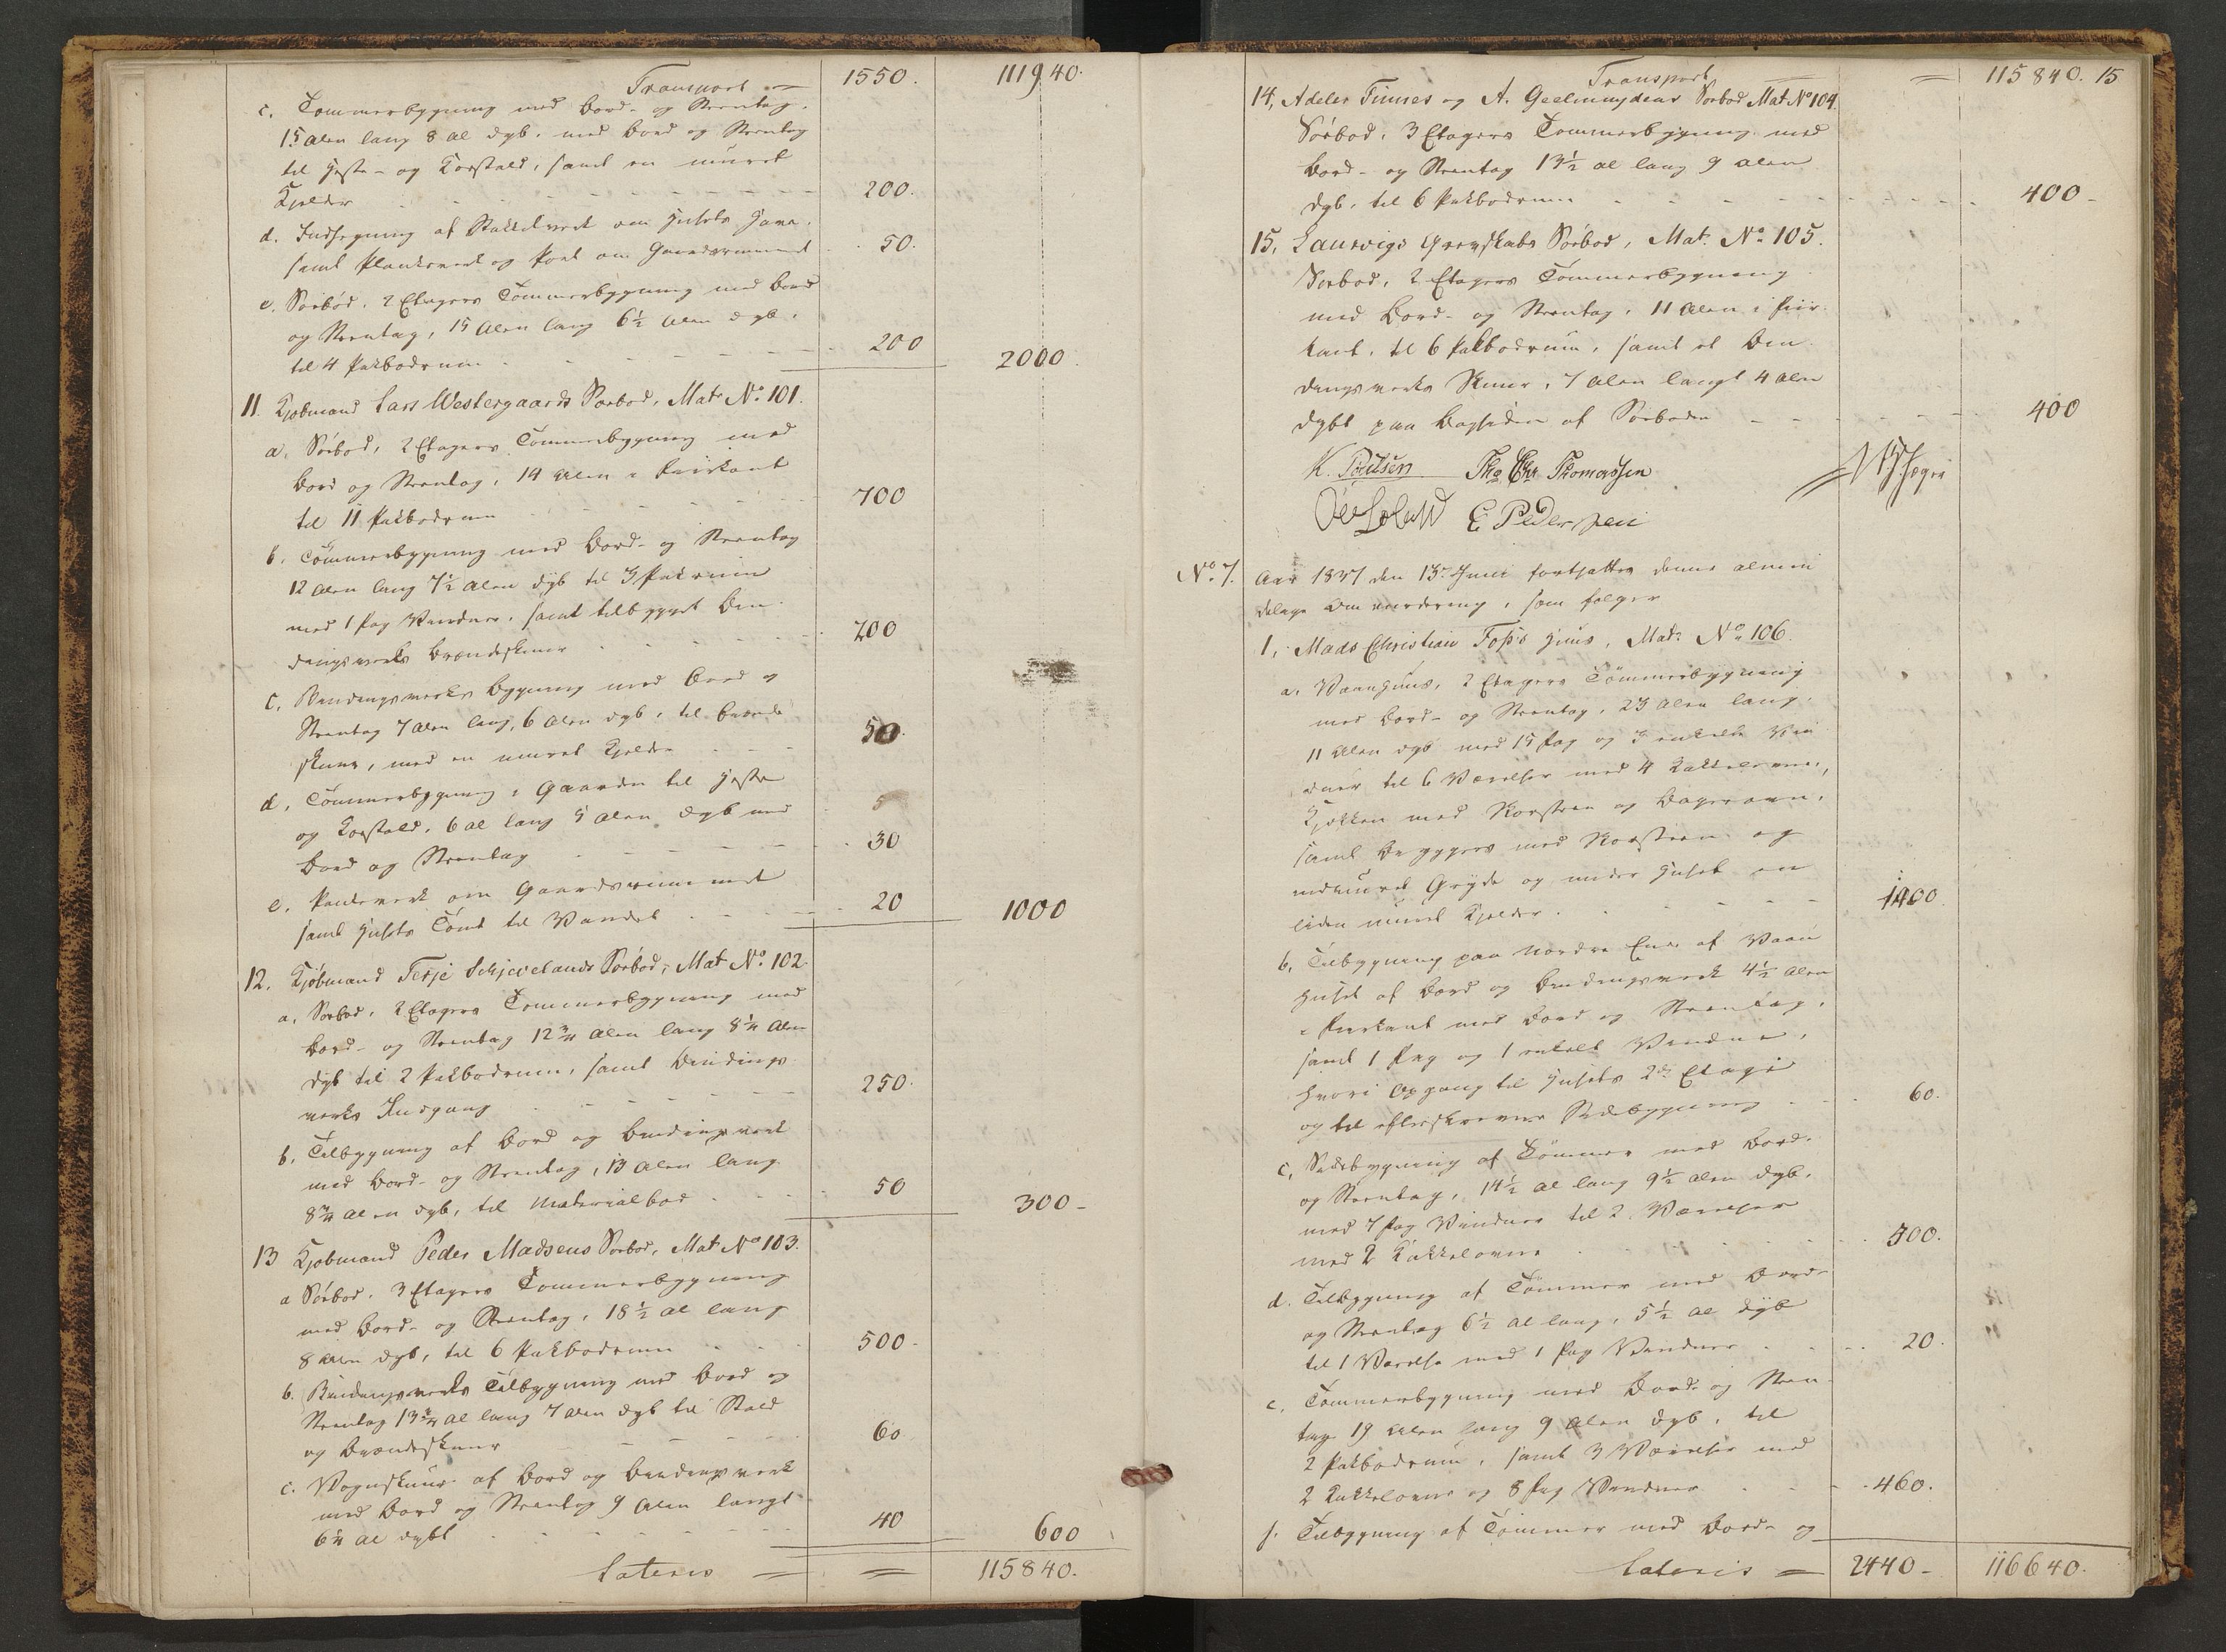 Transport = 1550. 111940.
c. Tømmerbygning med Bord- og Steentag.
15 Alen lang 8 Al dyb. med Bord og Steentag
til Heste- og Kostald, samt en muret
Kjelder 200.
d. Indhegning af Stakkitverk om Husets Have.
samt Plankeverk og Port om Gaardsrummet 50.
e. Søebod. 2 Etagers Tømmerbygning med Bord
og Steentag, 15 Alen lang 6½ Alen dyb.
til 4 Pakbodrum 200 2000.
11. Kjøbmand Lars Westergaards Søebod, Mat. No. 101.
a. Søebod, 2 Etagers Tømmerbygning med
Bord og Steentag, 14 Alen i Fiirkant
til 11 Pakbodrum 700
b. Tømmerbygning med Bord- og Steentag
12 Alen lang 7½ Alen dyb til 3 Pakrum
med 1 Fag Vinduer, samt tilbygget Bin-
dingsverks Brændeskuur 200
c. Bindingsverks Bygning med Bord og
Steentag 7 Alen lang, 6 Alen dyb, til Brænde
skuur, med en muret Kjelder 50.
d. Tømmerbygning i Gaarden til Heste
og Kostald, 6 al lang 5 Alen dyb med
Bord og Steentag 30
e. Plankeverk om Gaardsrummet
samt Husets Tomt til Vandet 20 1000
12. Kjøbmand Terje Schjevelands Søebod, Mat No. 102.
a. Søebod, 2 Etagers Tømmerbygning med
Bord- og Steentag 12¾ Alen lang 8¼ Alen
dyb til 2 Pakbodrum, samt Bindings
verks Indgang 250.
b. Tilbygning af Bord og Bindingsverk
med Bord- og Steentag, 13 Alen lang
8¾ Alen dyb, til Materialbod 50 300-
13 Kjøbmand Peder Madsens Søebod, Mat No 103.
a Søebod. 3 Etagers Tømmerbygning
med Bord- og Steentag, 18½ al lang
8 Alen dyb, til 6 Pakbodrum 500.
b. Bindingsverks Tilbygning med Bord og
Steentag 13¾ al lang 7 Alen dyb til Stald
og Brændeskuur 60
c. Vognskuur af Bord og Bindingsverk
med Bord og Steentag 9 Alen langt
6¼ al dybt 40 600
Lateris = = 115840.
Transport = 115840. 15
14, Adeler Finnes og A. Geelmuydens Søebod Mat No 104.
Søebod. 3 Etagers Tømmerbygning med
Bord- og Steentag 13½ al lang 9 Alen
dyb, til 6 Pakbodrum 400-
15, Laurvigs Grevskabs Søebod, Mat. No. 105.
Søebod, 2 Etagers Tømmerbygning
med Bord- og Steentag, 11 Alen i Fiir-
kant, til 6 Pakbodrum, samt et Bin-
dingsverks Skuur, 7 Alen langt 4 Alen
dybt paa Bagsiden af Søeboden 400
K. Poulsen Ths Chr Thomassen
E Pedersen
No. 7. Aar 1837 den 13de Juni fortsattes denne almin
delige Omvurdering, som følger
1, Mads Christian Foss's Huus, Mat. No. 106.
a. Vaanhuus, 2 Etagers Tømmerbygning
med Bord- og Steentag, 23 Alen lang,
11 Alen dyb med 15 Fag og 3 enkelte Vin
duer til 6 Værelser med 4 Kakkelovne,
Kjøkken med Skorsteen og Bagerovn,
samt Bryggers med Skorsteen og
indmuret Gryde og under Huset en
liden muret Kjelder. 1400
b, Tilbygning paa nordre Ende af Vaan
huset af Bord og Bindingsverk 4½ Alen
i Fiirkant med Bord og Steentag,
samt 1 Fag og 1 enkelt Vindue,
hvori Opgang til Husets 2den Etage
og til efterskrevne Sidebygning 60.
c, Sidebygning af Tømmer med Bord-
og Steentag, 14½ al lang 9½ Alen dyb,
med 7 Fag Vinduer til 2 Værelser
med 2 Kakkelovne 500.
d. Tilbygning af Tømmer med Bord-
og Steentag 6½ al lang, 5½ al dyb
til 1 Værelse med 1 Fag Vinduer 20.
e. Tømmerbygning med Bord- og Steen-
tag 19 Alen lang 9 Alen dyb, til
2 Pakbodrum, samt 3 Værelser med
2 Kakkelovne og 8 Fag Vinduer 460.
f. Tilbygning af Tømmer med Bord- og
Lateris = 2440- 116640.